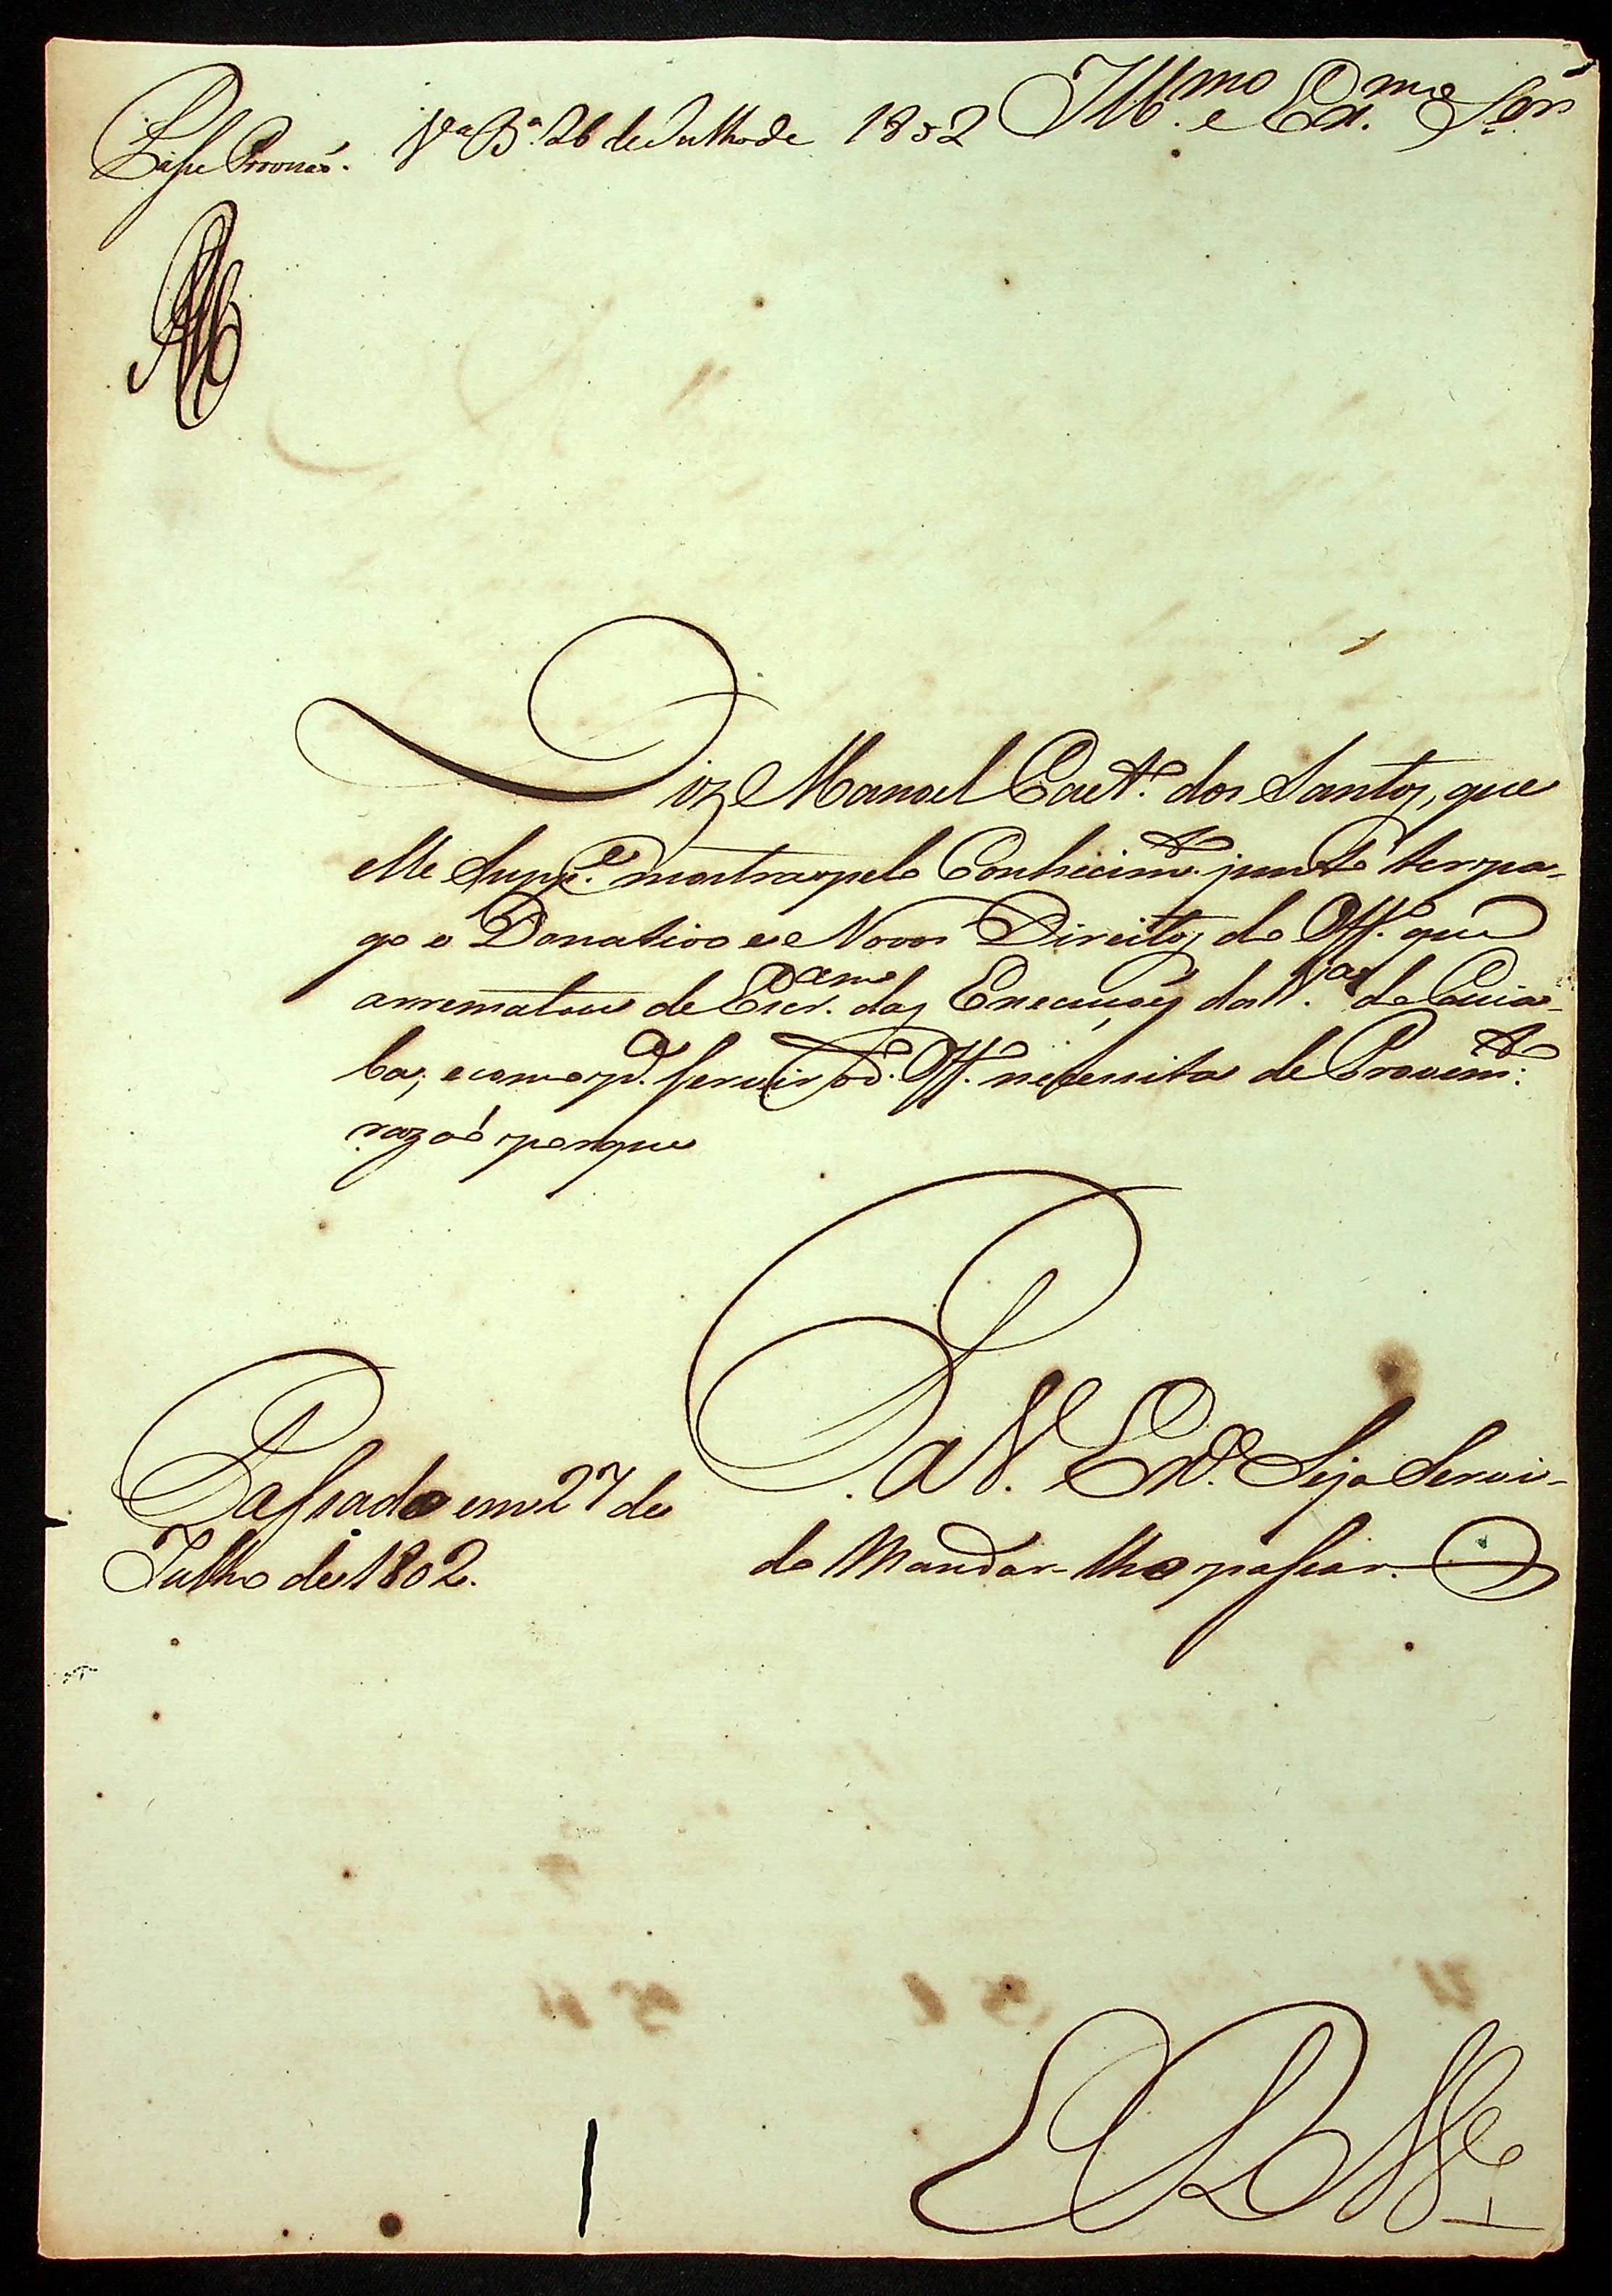 Ill.mo e Ex.mo Sen.r
Passe Provisaõ. V.a B.a 26 de Julho de 1802
Diz Manoel Caet.o dos Santos, que
elle Supp.e mostra pelo Conhecim.to junto ter pa-
go o Donativo e Novos Direitos do Off.o que
arrematou de Escr.am das Execuçoẽs da V.a do Cuia-
ba; e como p.a servir o d.o Off.o necessita de Provim.to
razaõ porque
P. a V. Ex.a Seja Servi-
do Mandar-lho passar.
Passado em 27 de
Julho de 1802.
E R M.ce